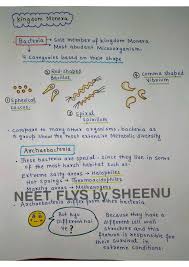 Kingdom Monera
Bacteria → Sole member of kingdom Monera
→ Most abundant Microorganism
4 categories based on their shape
② Rod-shaped
Bacillus
④ Comma shaped
Vibrium
① Spherical
coccus
③ Spiral
Spirillum
• Compare to many other organisms, bacteria as
a group show the most extensive Metabolic diversity
Archaebacteria
• These bacteria are special since they live in some
of the most harsh habitat such as:
Extreme salty areas → Halophiles
Hot springs → Thermoacidophiles
Marshy areas → Methanogens
NEET FLYS by SHEENU
• Archaebacteria differ from other bacteria
But kyu
different hai
te ?
Because they have a
different cell wall
structure and this
feature is responsible for
their survival in
extreme conditions